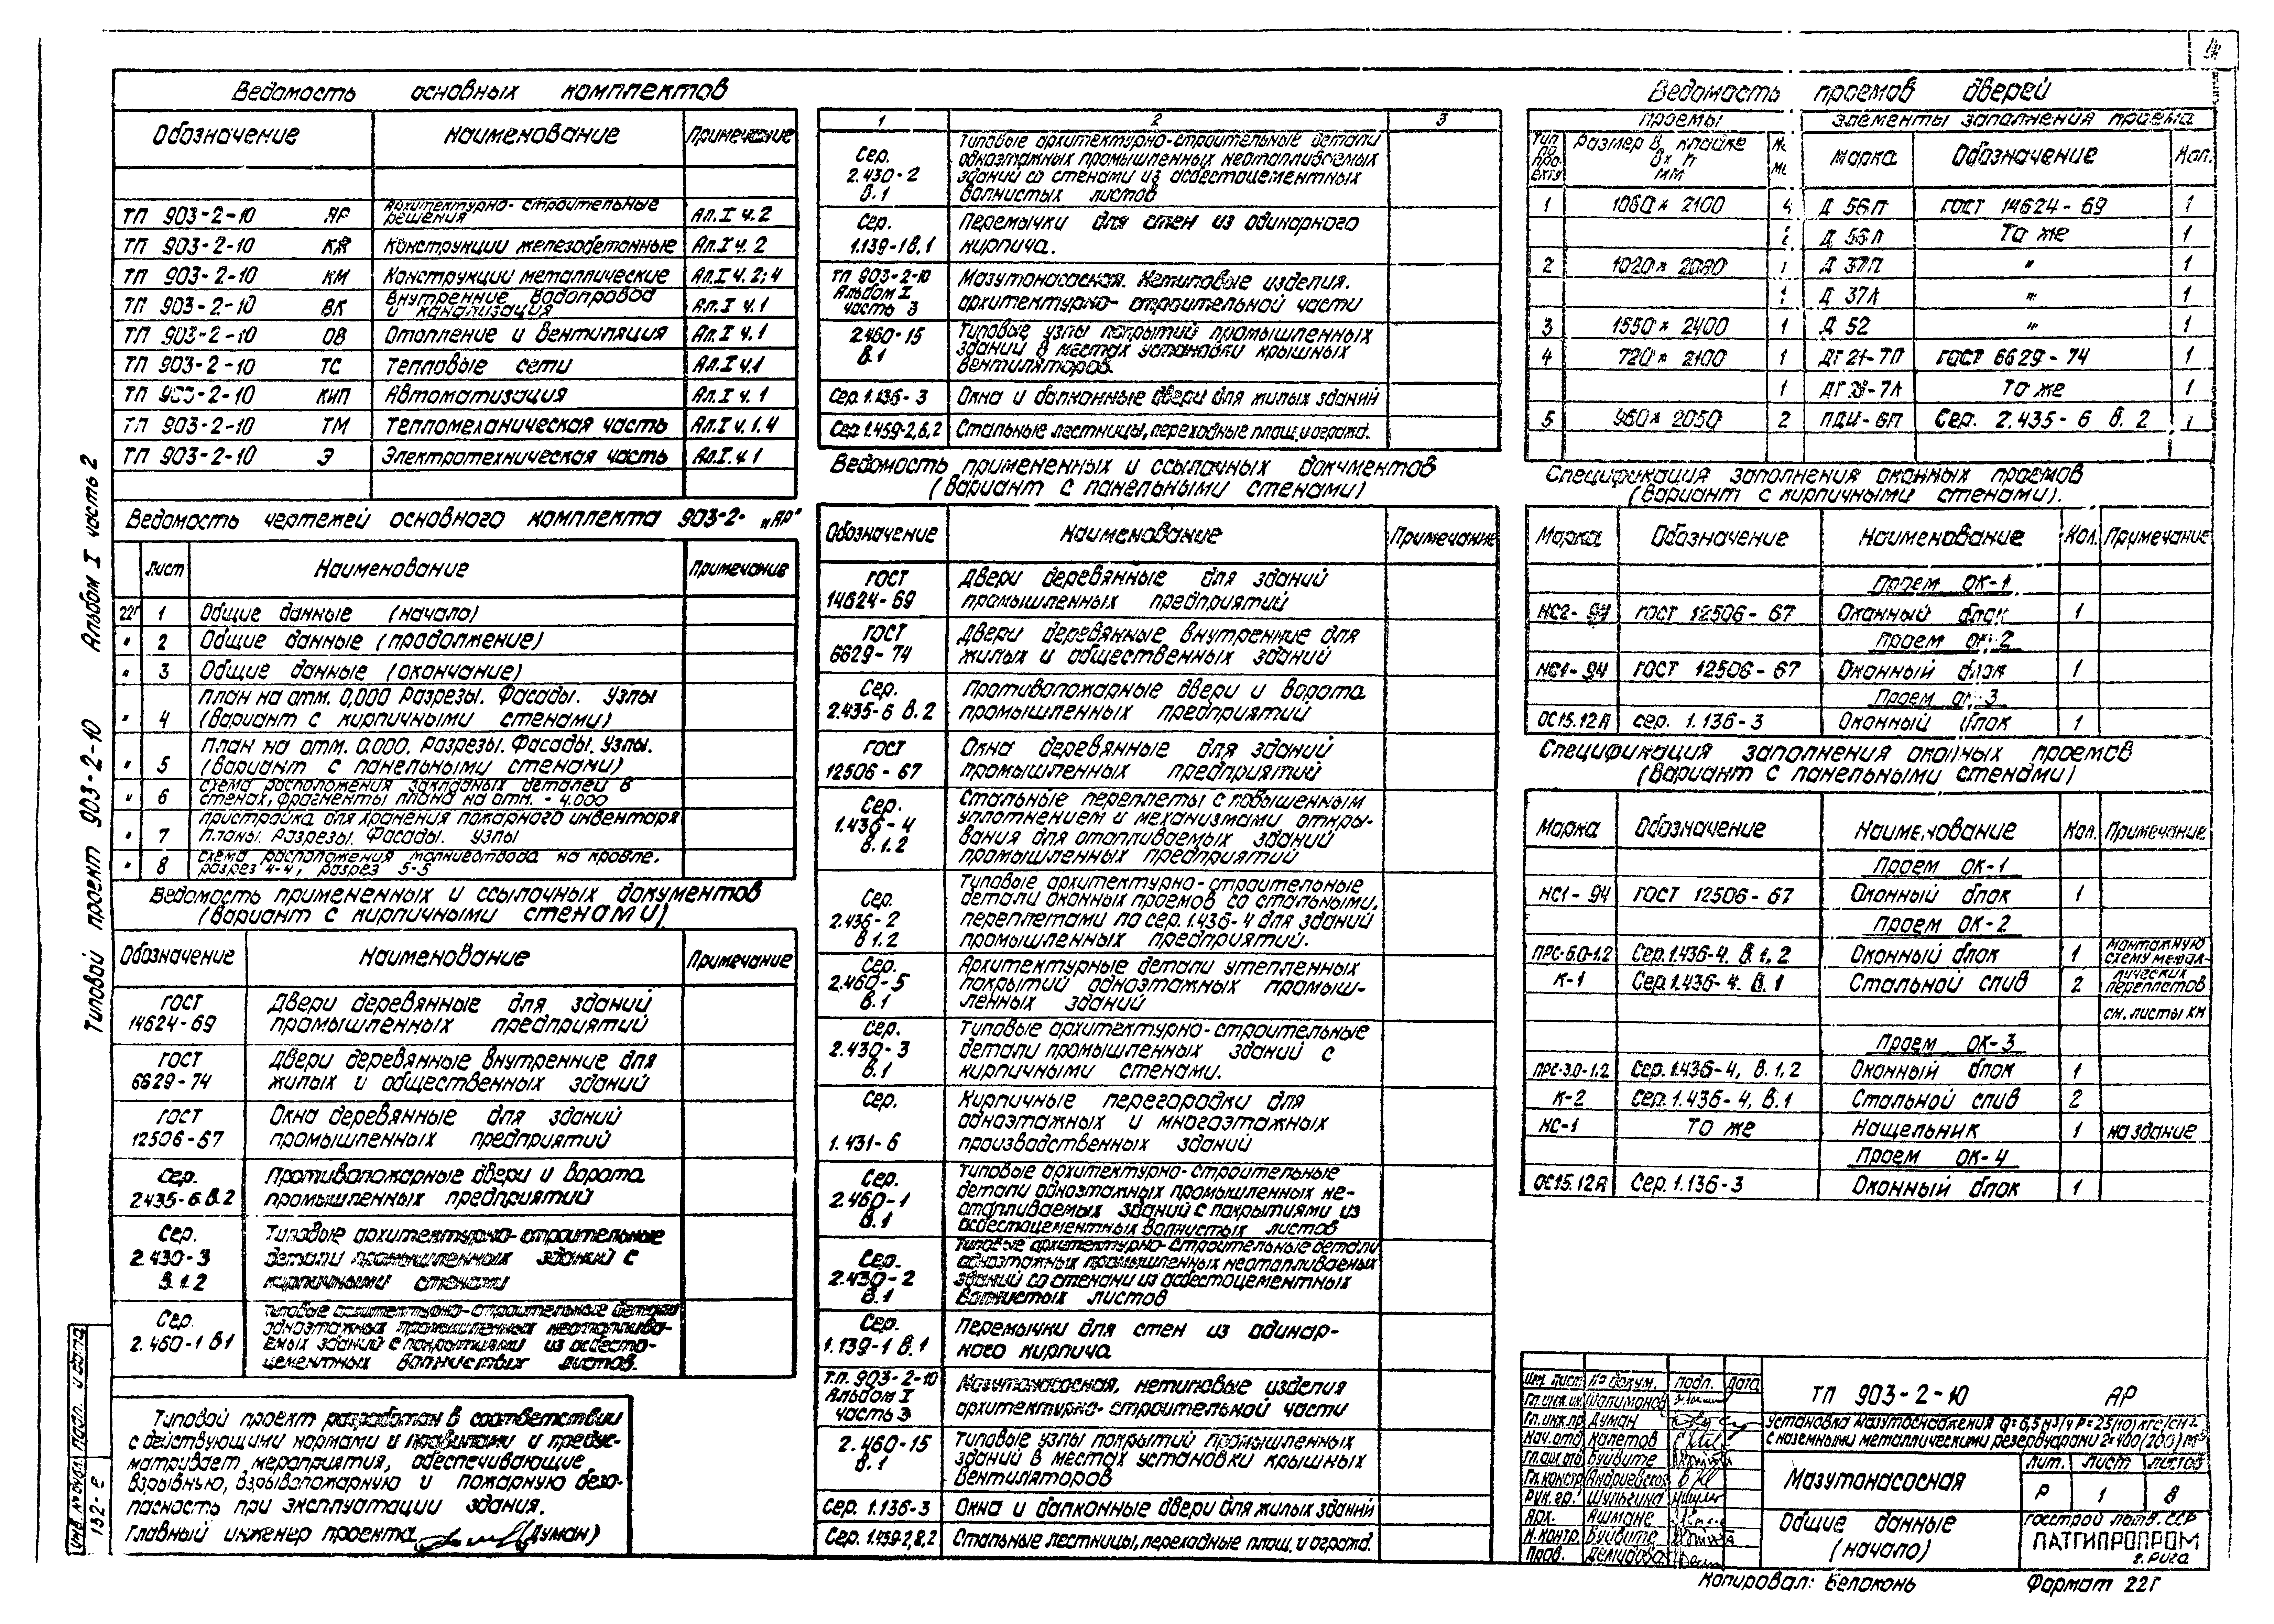 Типовой проект 903-2-10 Альбом I часть 2
Ведомость основных комплектов
Обозначение Наименование Примечание
ТП 903-2-10 АР Архитектурно-строительные решения Ал.I ч.2
ТП 903-2-10 КЖ Конструкции железобетонные Ал.I ч.2
ТП 903-2-10 КМ Конструкции металлические Ал.I ч.2;4
ТП 903-2-10 ВК Внутренние водопровод и канализация Ал.I ч.1
ТП 903-2-10 ОВ Отопление и вентиляция Ал.I ч.1
ТП 903-2-10 ТС Тепловые сети Ал.I ч.1
ТП 903-2-10 КИП Автоматизация Ал.I ч.1
ТП 903-2-10 ТМ Тепломеханическая часть Ал.I ч.1.4
ТП 903-2-10 Э Электротехническая часть Ал.I.ч.1
Ведомость чертежей основного комплекта 903-2- „АР"
Лист Наименование Примечание
22Г 1 Общие данные (начало)
" 2 Общие данные (продолжение)
" 3 Общие данные (окончание)
" 4 План на отм. 0,000 Разрезы. Фасады. Узлы
(вариант с кирпичными стенами)
" 5 План на отм. 0.000. Разрезы. Фасады. Узлы.
(вариант с панельными стенами)
" 6 Схема расположения закладных деталей в
стенах, фрагменты плана на отм. - 4.000
" 7 Пристройка для хранения пожарного инвентаря
Планы. Разрезы. Фасады. Узлы
" 8 Схема расположения молниеотвода на кровле.
разрез 4-4, разрез 5-5
Ведомость примененных и ссылочных документов
(вариант с кирпичными стенами).
Обозначение Наименование Примечание
ГОСТ 14624-69 Двери деревянные для зданий
промышленных предприятий
ГОСТ 6629-74 Двери деревянные внутренние для
жилых и общественных зданий
ГОСТ 12506-67 Окна деревянные для зданий
промышленных предприятий
Сер. 2.435-6 в.2 Противопожарные двери и ворота
промышленных предприятий
Сер. 2.430-3 в.1.2 Типовые архитектурно-строительные
детали промышленных зданий с
кирпичными стенами
Сер. 2.460-1 в1 Типовые архитектурно-строительные детали
одноэтажных промышленных неотаплива-
емых зданий с покрытиями из асбесто-
цементных волнистых листов.
Типовой проект разработан в соответствии
с действующими нормами и правилами и предус-
матривает мероприятия, обеспечивающие
взрывную, взрывопожарную и пожарную безо-
пасность при эксплуатации здания.
Главный инженер проекта (Думан)
инв. № подл. подп. и дата
132-е
1 2 3
Сер. 2.430-2 в.1 Типовые архитектурно-строительные детали
одноэтажных промышленных неотапливаемых
зданий со стенами из асбестоцементных
волнистых листов
Сер. 1.139-1 в.1 Перемычки для стен из одинарного
кирпича.
ТП 903-2-10 Альбом I часть 3 Мазутонасосная. Нетиповые изделия.
архитектурно-строительной части
2.460-15 в.1 Типовые узлы покрытий промышленных
зданий в местах установки крышных
вентиляторов.
Сер. 1.136-3 Окна и балконные двери для жилых зданий
Сер 1.459-2,в,2 Стальные лестницы, переходные площ. и огражд.
Ведомость примененных и ссылочных документов
(вариант с панельными стенами)
Обозначение Наименование Примечание
ГОСТ 14624-69 Двери деревянные для зданий
промышленных предприятий
ГОСТ 6629-74 Двери деревянные внутренние для
жилых и общественных зданий
Сер. 2.435-6 в.2 Противопожарные двери и ворота
промышленных предприятий
ГОСТ 12506-67 Окна деревянные для зданий
промышленных предприятий
Сер. 1.436-4 в.1.2 Стальные переплеты с повышенным
уплотнением и механизмами откры-
вания для отапливаемых зданий
промышленных предприятий
Сер. 2.436-2 в 1.2 Типовые архитектурно-строительные
детали оконных проемов со стальными,
переплетами по сер. 1.436-4 для зданий
промышленных предприятий.
Сер. 2.460-5 в.1 Архитектурные детали утепленных
покрытий одноэтажных промыш-
ленных зданий
Сер. 2.430-3 в.1 Типовые архитектурно-строительные
детали промышленных зданий с
кирпичными стенами.
Сер. 1.431-6 Кирпичные перегородки для
одноэтажных и многоэтажных
производственных зданий
Сер. 2.460-1 в.1 Типовые архитектурно-строительные
детали одноэтажных промышленных не-
отапливаемых зданий с покрытиями из
асбестоцементных волнистых листов
Сер. 2.430-2 в.1 Типовые архитектурно-строительные детали
одноэтажных промышленных неотапливаемых
зданий со стенами из асбестоцементных
волнистых листов
Сер. 1.139-1 в.1 Перемычки для стен из одинар-
ного кирпича
т.п. 903-2-10 Альбом I часть 3 Мазутонасосная, нетиповые изделия
архитектурно-строительной части
2.460-15 в.1 Типовые узлы покрытий промышленных
зданий в местах установки крышных
вентиляторов
Сер. 1.136-3 Окна и балконные двери для жилых зданий
Сер. 1.459-2,в,2 Стальные лестницы, переходные площ. и огражд.
Ведомость проемов дверей
Проемы Элементы заполнения проема
Тип по проекту Размер в кладке в х h мм Марка Обозначение Кол.
1 1060 х 2100 4 Д 56П ГОСТ 14624-69 1
Д 56Л То же 1
2 1020 х 2080 1 Д 37П " 1
1 Д 37Л " 1
3 1550 х 2400 1 Д 52 " 1
4 720 х 2100 1 ДГ21-7П ГОСТ 6629-74 1
1 ДГ21-7Л То же 1
5 960 х 2050 2 ПДИ-6П Сер. 2.435-6 в.2 1
Спецификация заполнения оконных проемов
(вариант с кирпичными стенами).
Марка Обозначение Наименование Кол. Примечание
Проем ОК-1
НС2-94 ГОСТ 12506-67 Оконный блок 1
Проем ОК-2
НС1-94 ГОСТ 12506-67 Оконный блок 1
Проем ОК-3
ОС15.12А сер. 1.136-3 Оконный блок 1
Спецификация заполнения оконных проемов
(вариант с панельными стенами)
Марка Обозначение Наименование Кол. Примечание
Проем ОК-1
НС1-94 ГОСТ 12506-67 Оконный блок 1
Проем ОК-2
ПРС-6.0-1.2 Сер.1.436-4. в.1,2 Оконный блок 1 монтажную схему метал-
К-1 Сер.1.436-4. в.1 Стальной слив 2 лических переплетов
см. листы КМ
Проем ОК-3
ПРС-3.0-1.2 Сер. 1.436-4, в.1.2 Оконный блок 1
К-2 Сер. 1.436-4, в.1 Стальной слив 2
НС-1 То же Нащельник 1 на здание
Проем ОК-4
ОС15.12А Сер. 1.136-3 Оконный блок 1
Изм. Лист № докум. Подп. Дата
Гл.инж.пр. Думан
Нач.отд Колетов
Гл.арх.отд Буйвите
Гл.констр.
Рук.гр. Шульгина
Арх. Яшмане
Н.контр. Буйвите
Пров. Демидова
ТП 903-2-10 АР
Установка мазутоснабжения Q=6,5 м3/ч Р=25(10) кгс/см2
с наземными металлическими резервуарами 2×400(200) м3
Мазутонасосная
Лит. Лист Листов
Р 1 8
Общие данные
(начало)
Госстрой Латв.ССР
ЛАТГИПРОПРОМ
г.Рига
Копировал: Белоконь Формат 22Г